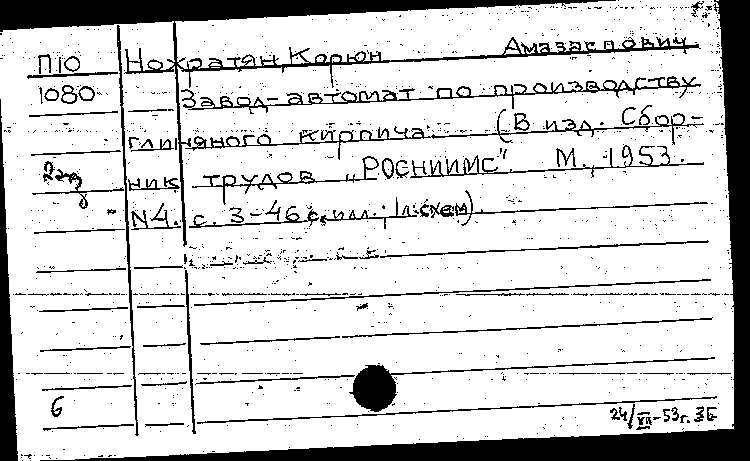 П10 Нохратян, Корюн Амазаспович
1080 Завод-автомат по производству
глиняного кирпича. (В изд. Сбор-
2 экз ник трудов „РОСНИИМС". М., 1953.
N4. с. 3-46 с илл.; 1 л. схем).
6
24/VII-53г. ЗБ